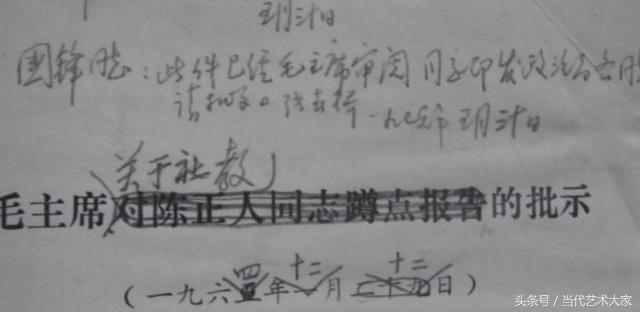 五月卅日
国锋同志：此件已经毛主席审阅 同意印发政治局各同
请批发。 一九七六年 五月卅日
关于社教
毛主席对陈正人同志蹲点报告的批示
四 十二 十二
（一九六五年一月二十九日）
头条号／当代艺术大家